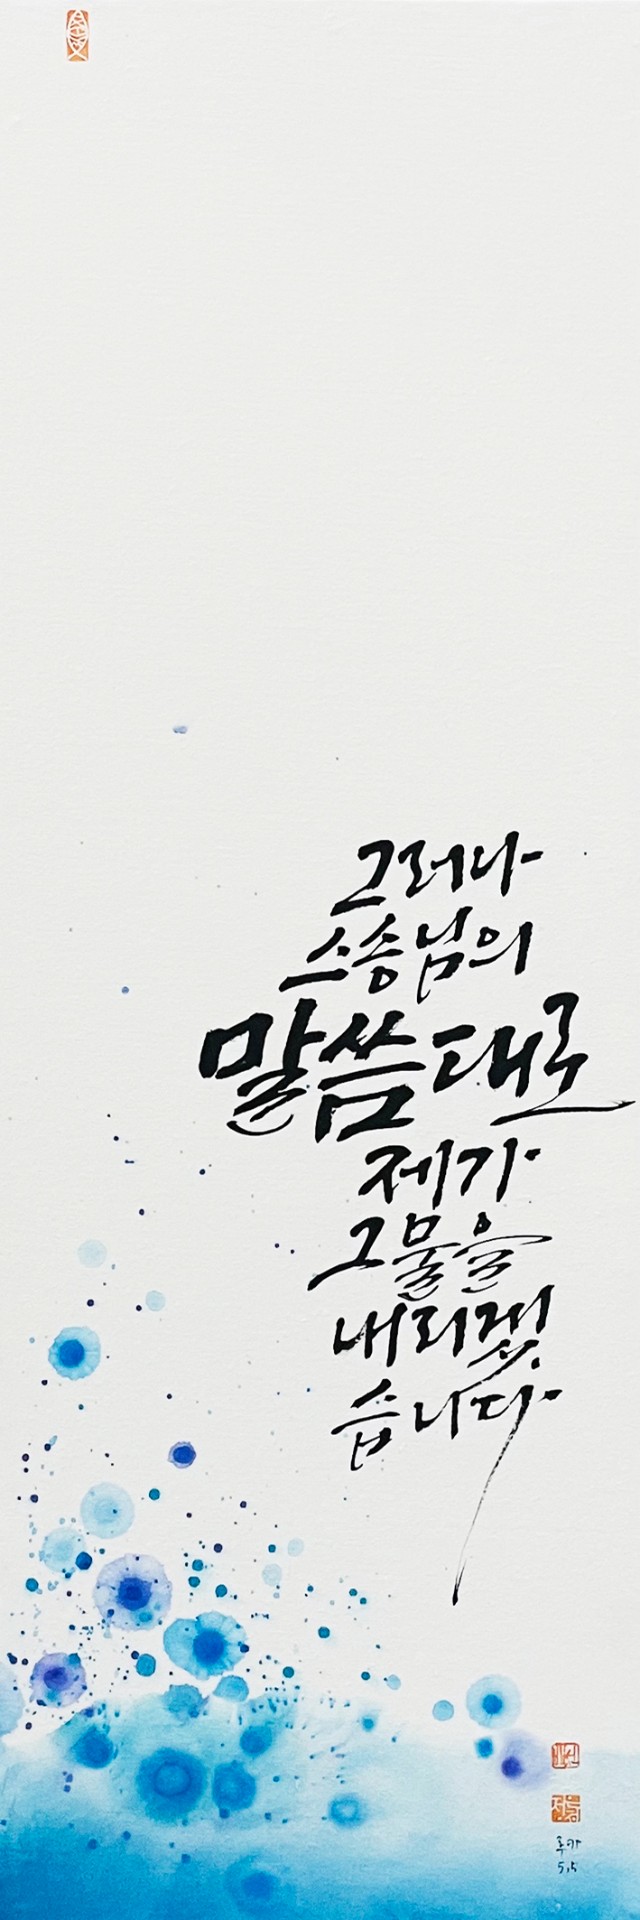 그러나
스승님의
말씀대로
제가
그물을
내리겠
습니다
루카
5,5